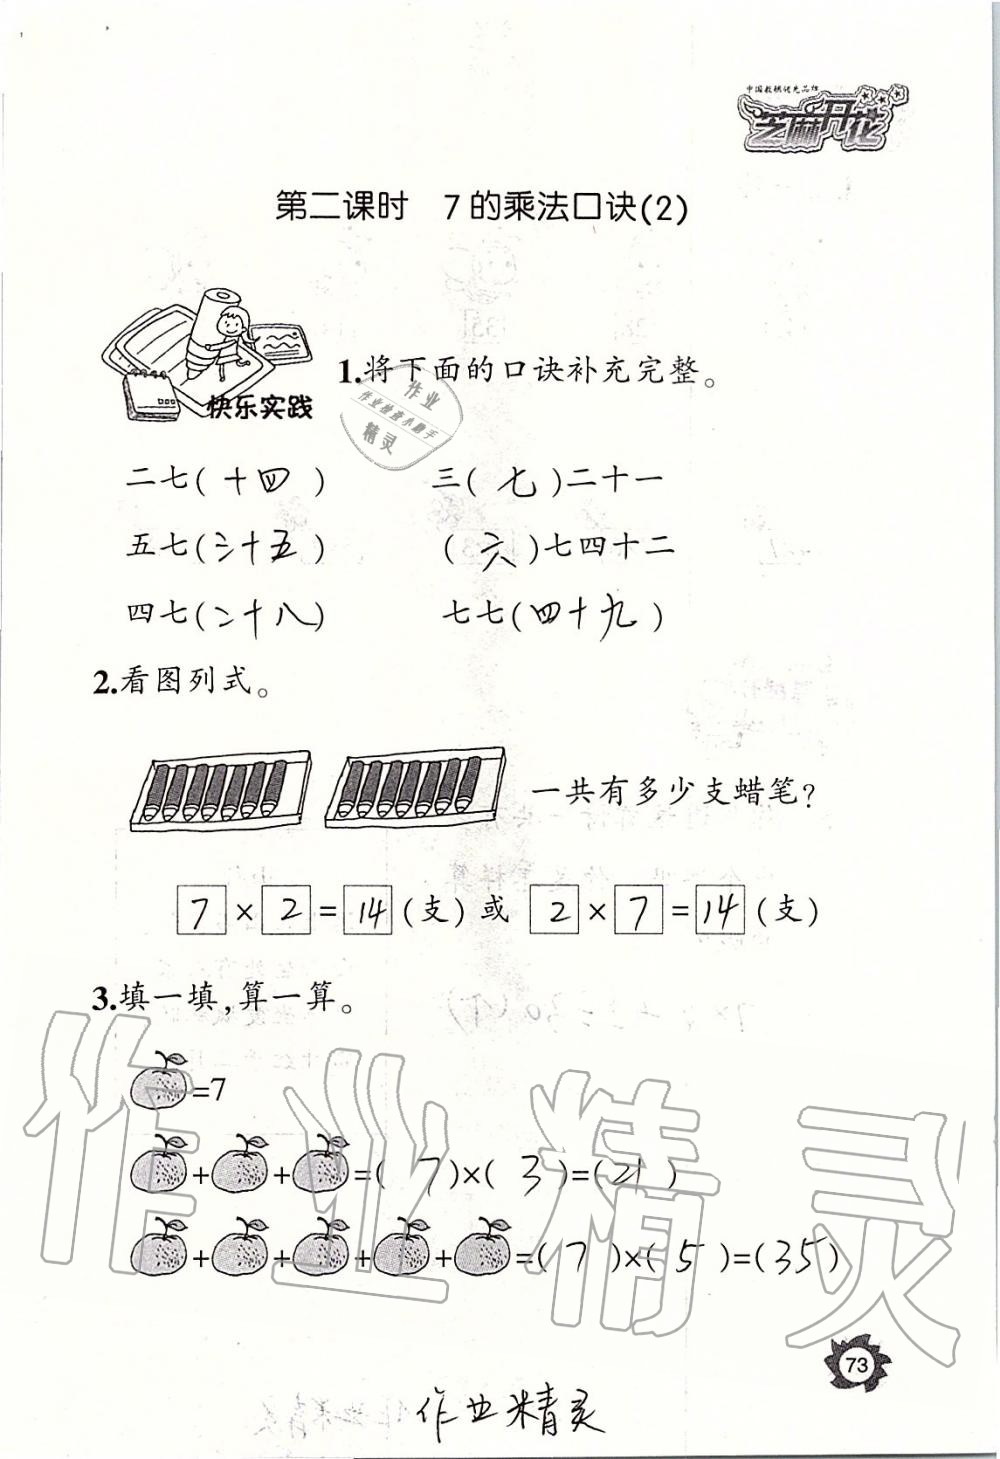 中国教辅优先品牌
芝麻开花
第二课时 7的乘法口诀(2)
快乐实践
1.将下面的口诀补充完整。
作业
作业检查小助手
精灵
二七(十四) 三(七)二十一
五七(三十五) (六)七四十二
四七(二十八) 七七(四十九)
2.看图列式。
一共有多少支蜡笔?
7×2=14(支)或 2×7=14(支)
3.填一填,算一算。
=7
++=(7)×(3)=(21)
++++=(7)×(5)=(35)
作业精灵
73
作业精灵